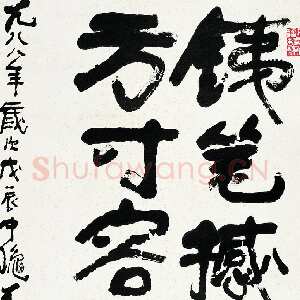 铁笔撼
方寸容
九八八年歲次戊辰中龝
Shufawang.CN